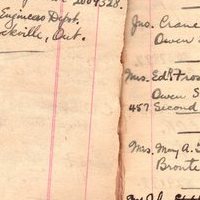 2004328.
Engineers Dept.
ckville, Ont.
Jno. Crane
Owen
Mrs. Ed. Fros
Owen S
457 Second
Mrs. May A.
Bronte